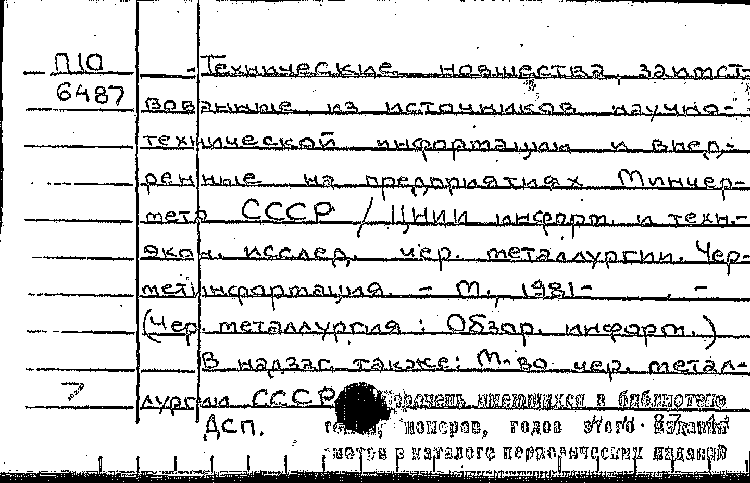 П10 - Технические новшества, заимст-
6487 вованные из источников научно-
технической информации и внед-
ренные на предприятиях Минчер-
мета СССР / ЦНИИ информ. и техн.-
экон. исслед. чер. металлургии. Чер-
метинформация. - М., 1981- . -
(Чер. металлургия : Обзор. информ.)
В надзаг. также: М-во чер. метал-
лургии СССР Перечень имеющихся в библиотеке
ДСП. томов, номеров, годов этого издания
смотри в каталоге периодических изданий